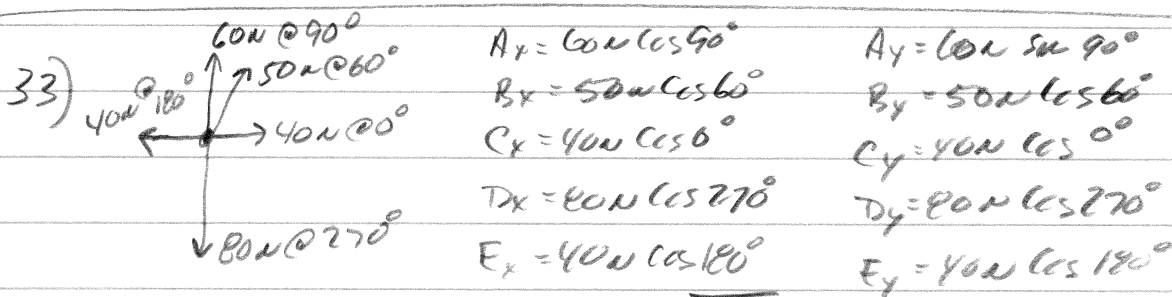 33)
60N @ 90°
50N @ 60°
40N @ 180°
40N @ 0°
80N @ 270°
Ax = 60N Cos 90°
Bx = 50N Cos 60°
Cx = 40N Cos 0°
Dx = 80N Cos 270°
Ex = 40N Cos 180°
Ay = 60N Sin 90°
By = 50N Cos 60°
Cy = 40N Cos 0°
Dy = 80N Cos 270°
Ey = 40N Cos 180°